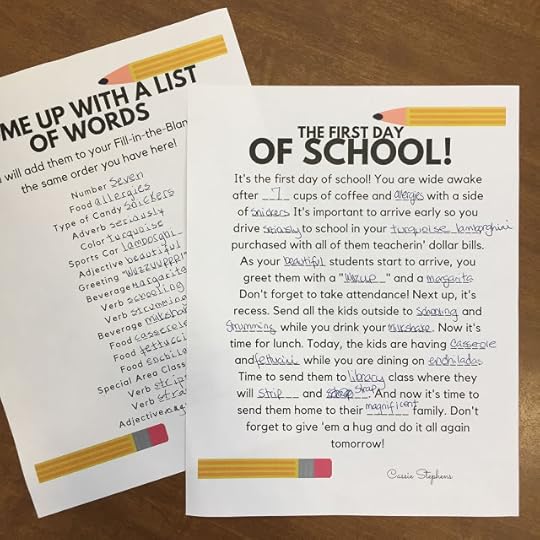 ME UP WITH A LIST
OF WORDS
will add them to your Fill-in-the-Blan
the same order you have here!
Number seven
Food allergies
Type of Candy snickers
Adverb seriously
Color turquoise
Sports Car lamborghi
Adjective beautiful
Greeting "Wuzzuppp!"
Beverage margarita
Verb schooling
Verb strumming
Beverage milksha
Food casserole
Food fettucci
Food enchila
Special Area Class
Verb strip
Verb stra
Adjective mag
THE FIRST DAY
OF SCHOOL!
It's the first day of school! You are wide awake
after 7 cups of coffee and allergies with a side
of snickers. It's important to arrive early so you
drive seriously to school in your turquoise lamborghini
purchased with all of them teacherin' dollar bills.
As your beautiful students start to arrive, you
greet them with a "Wuzup" and a margarita
Don't forget to take attendance! Next up, it's
recess. Send all the kids outside to schooling and
strumming while you drink your milkshake. Now it's
time for lunch. Today, the kids are having casserole
and fettucini while you are dining on enchiladas
Time to send them to library class where they
will strip and strap. And now it's time to
send them home to their magnificent family. Don't
forget to give 'em a hug and do it all again
tomorrow!
Cassie Stephens